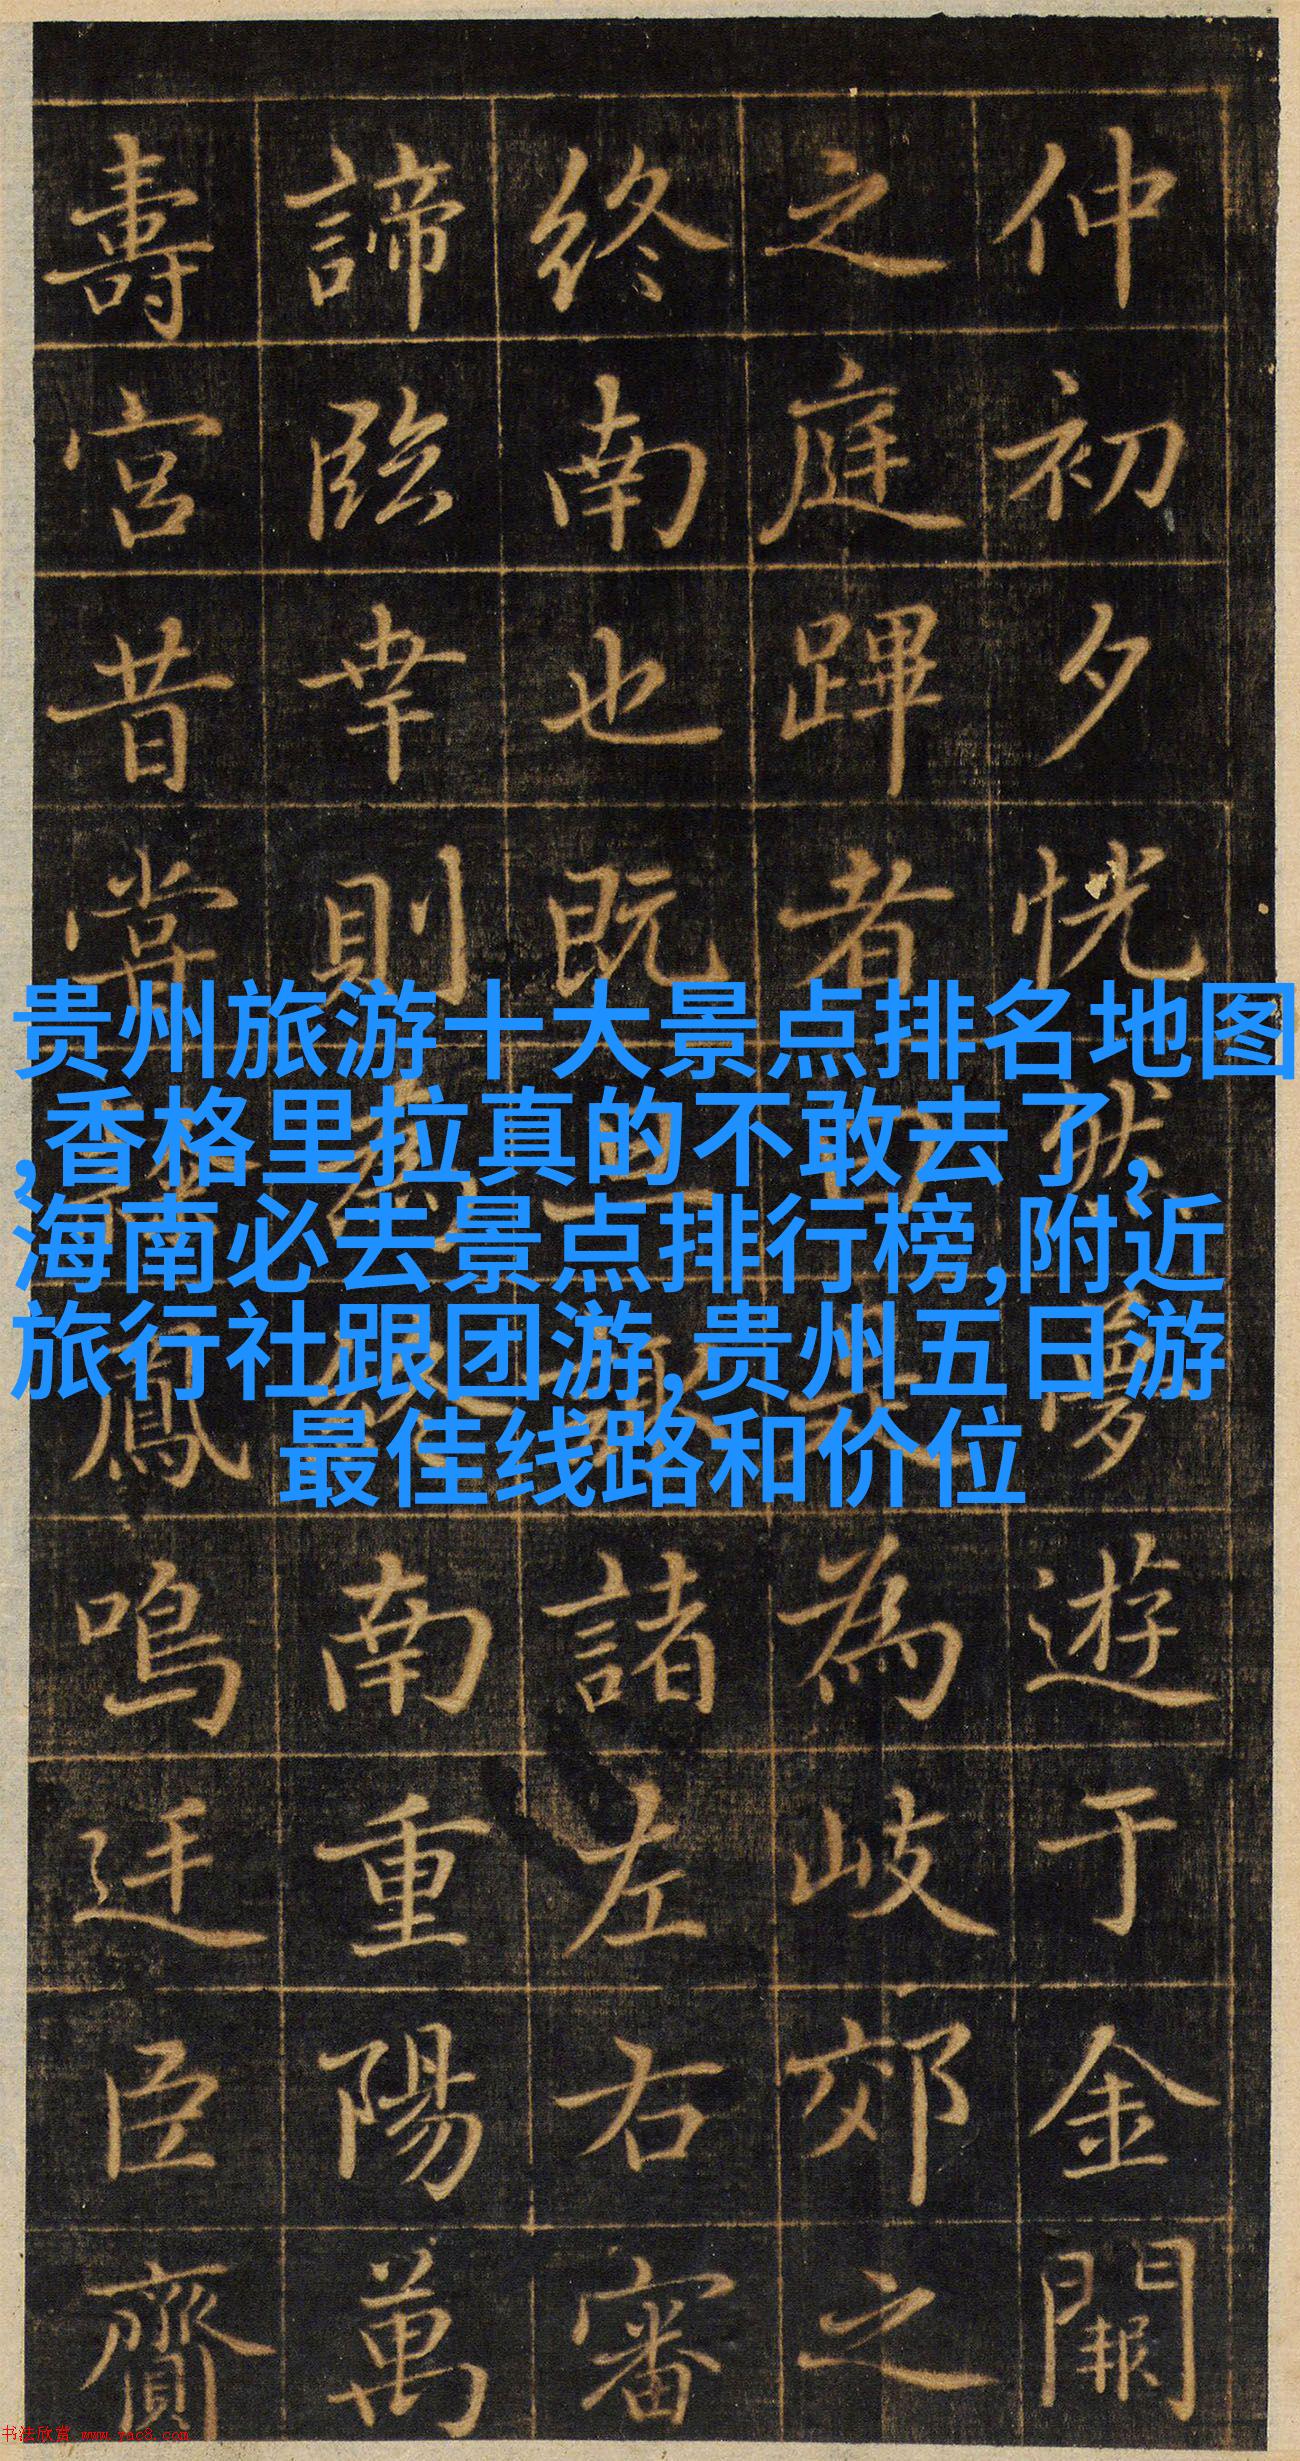 仲初夕恍然夢遊于金闕
之庭蹕者為岐郊之
終南也既諸左右審
諦臨幸則為終南重陽萬
壽宮昔嘗鳳鳴廷臣齎
贵州旅游十大景点排名地图
,香格里拉真的不敢去了,
海南必去景点排行榜,附近
旅行社跟团游,贵州五日游
最佳线路和价位
书法欣赏 www.yac8.com